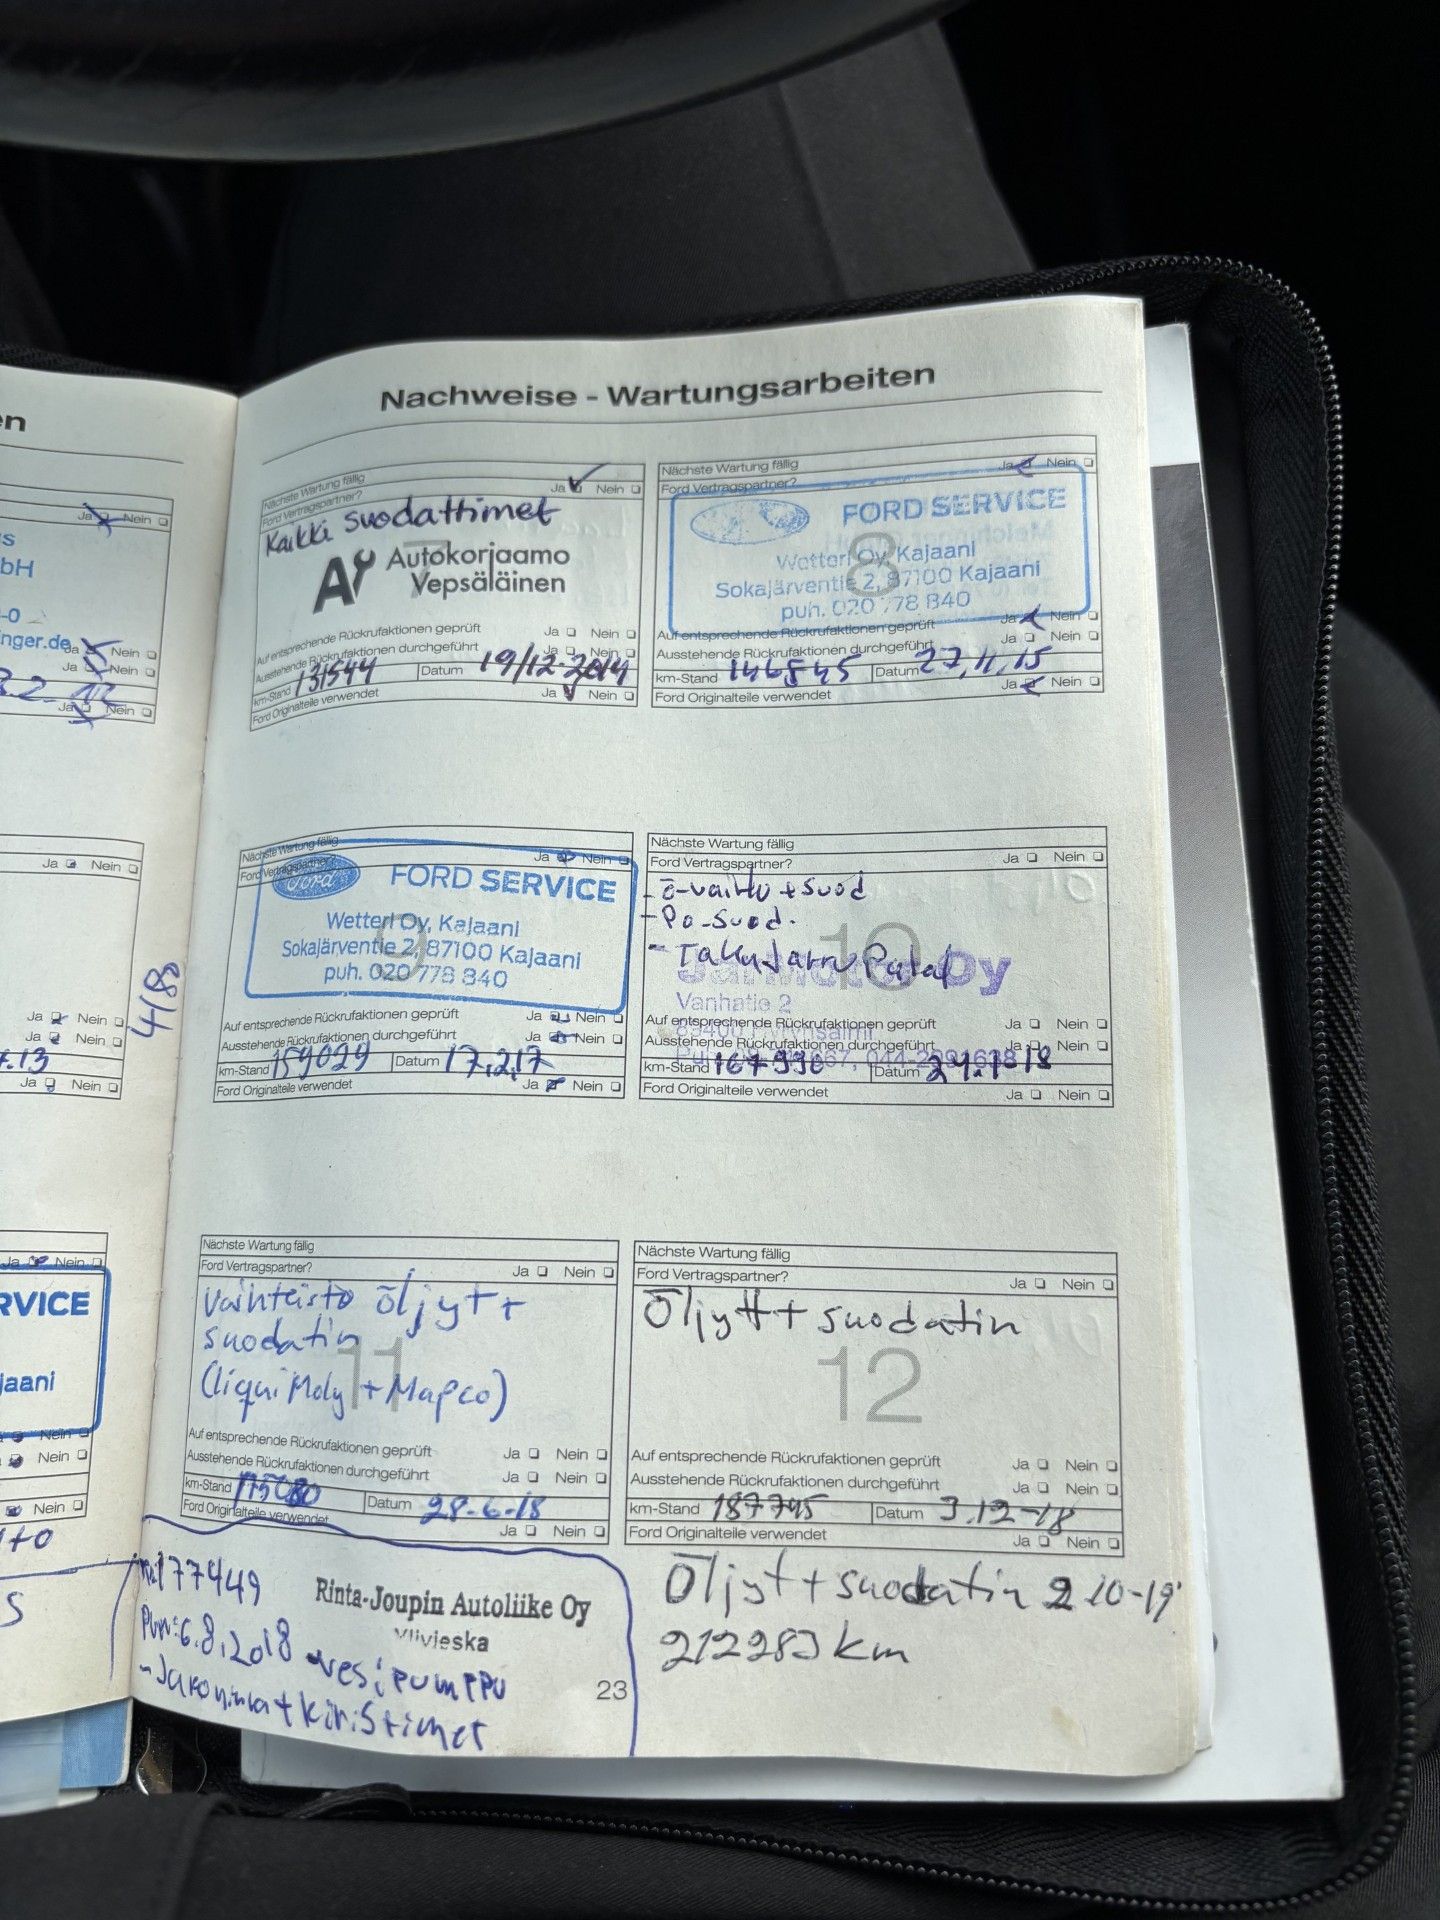 en
Nachweise - Wartungsarbeiten
Ja Nein
bH
-0
nger.de
Ja Nein
Ja Nein
Ja Nein
Ja Nein
Ja Nein
Ja Nein
.13
Ja Nein
4/80
Ja Nein
RVICE
jaani
Nein
Nein
Nein
S
Nächste Wartung fällig
Ford Vertragspartner? Ja Nein
Kaikki suodattimet
7
Autokorjaamo
Vepsäläinen
Auf entsprechende Rückrufaktionen geprüft Ja Nein
Ausstehende Rückrufaktionen durchgeführt Ja Nein
km-Stand 131544 Datum 19/12.2014
Ford Originalteile verwendet Ja Nein
Nächste Wartung fällig
Ford Vertragspartner? Ja Nein
8
FORD SERVICE
Wetteri Oy, Kajaani
Sokajärventie 2, 87100 Kajaani
puh. 020 778 840
Auf entsprechende Rückrufaktionen geprüft Ja Nein
Ausstehende Rückrufaktionen durchgeführt Ja Nein
km-Stand 146545 Datum 27,11,15
Ford Originalteile verwendet Ja Nein
Nächste Wartung fällig
Ford Vertragspartner? Ja Nein
9
Ford FORD SERVICE
Wetteri Oy, Kajaani
Sokajärventie 2, 87100 Kajaani
puh. 020 778 840
Auf entsprechende Rückrufaktionen geprüft Ja Nein
Ausstehende Rückrufaktionen durchgeführt Ja Nein
km-Stand 159029 Datum 17,2,17
Ford Originalteile verwendet Ja Nein
Nächste Wartung fällig
Ford Vertragspartner? Ja Nein
- ö-vaihto + suod
- Po-suod.
- Takajarru Palat
10
Oy
Vanhatie 2
Auf entsprechende Rückrufaktionen geprüft Ja Nein
Ausstehende Rückrufaktionen durchgeführt Ja Nein
km-Stand 167990 Datum 24.1.18
Ford Originalteile verwendet Ja Nein
Nächste Wartung fällig
Ford Vertragspartner? Ja Nein
Vaihteisto öljyt +
suodatin
11
(Liqui Moly + Mapco)
Auf entsprechende Rückrufaktionen geprüft Ja Nein
Ausstehende Rückrufaktionen durchgeführt Ja Nein
km-Stand Datum 28-6-18
Ford Originalteile verwendet Ja Nein
Nächste Wartung fällig
Ford Vertragspartner? Ja Nein
Öljyt + suodatin
12
Auf entsprechende Rückrufaktionen geprüft Ja Nein
Ausstehende Rückrufaktionen durchgeführt Ja Nein
km-Stand 187745 Datum 3.12-18
Ford Originalteile verwendet Ja Nein
177449
Rinta-Joupin Autoliike Oy
Ylivieska
Pvm: 6.8.2018 - vesipumppu
- Jakohihna + kiristimet
23
Öljyt + suodatin 2 10-19
212283 km